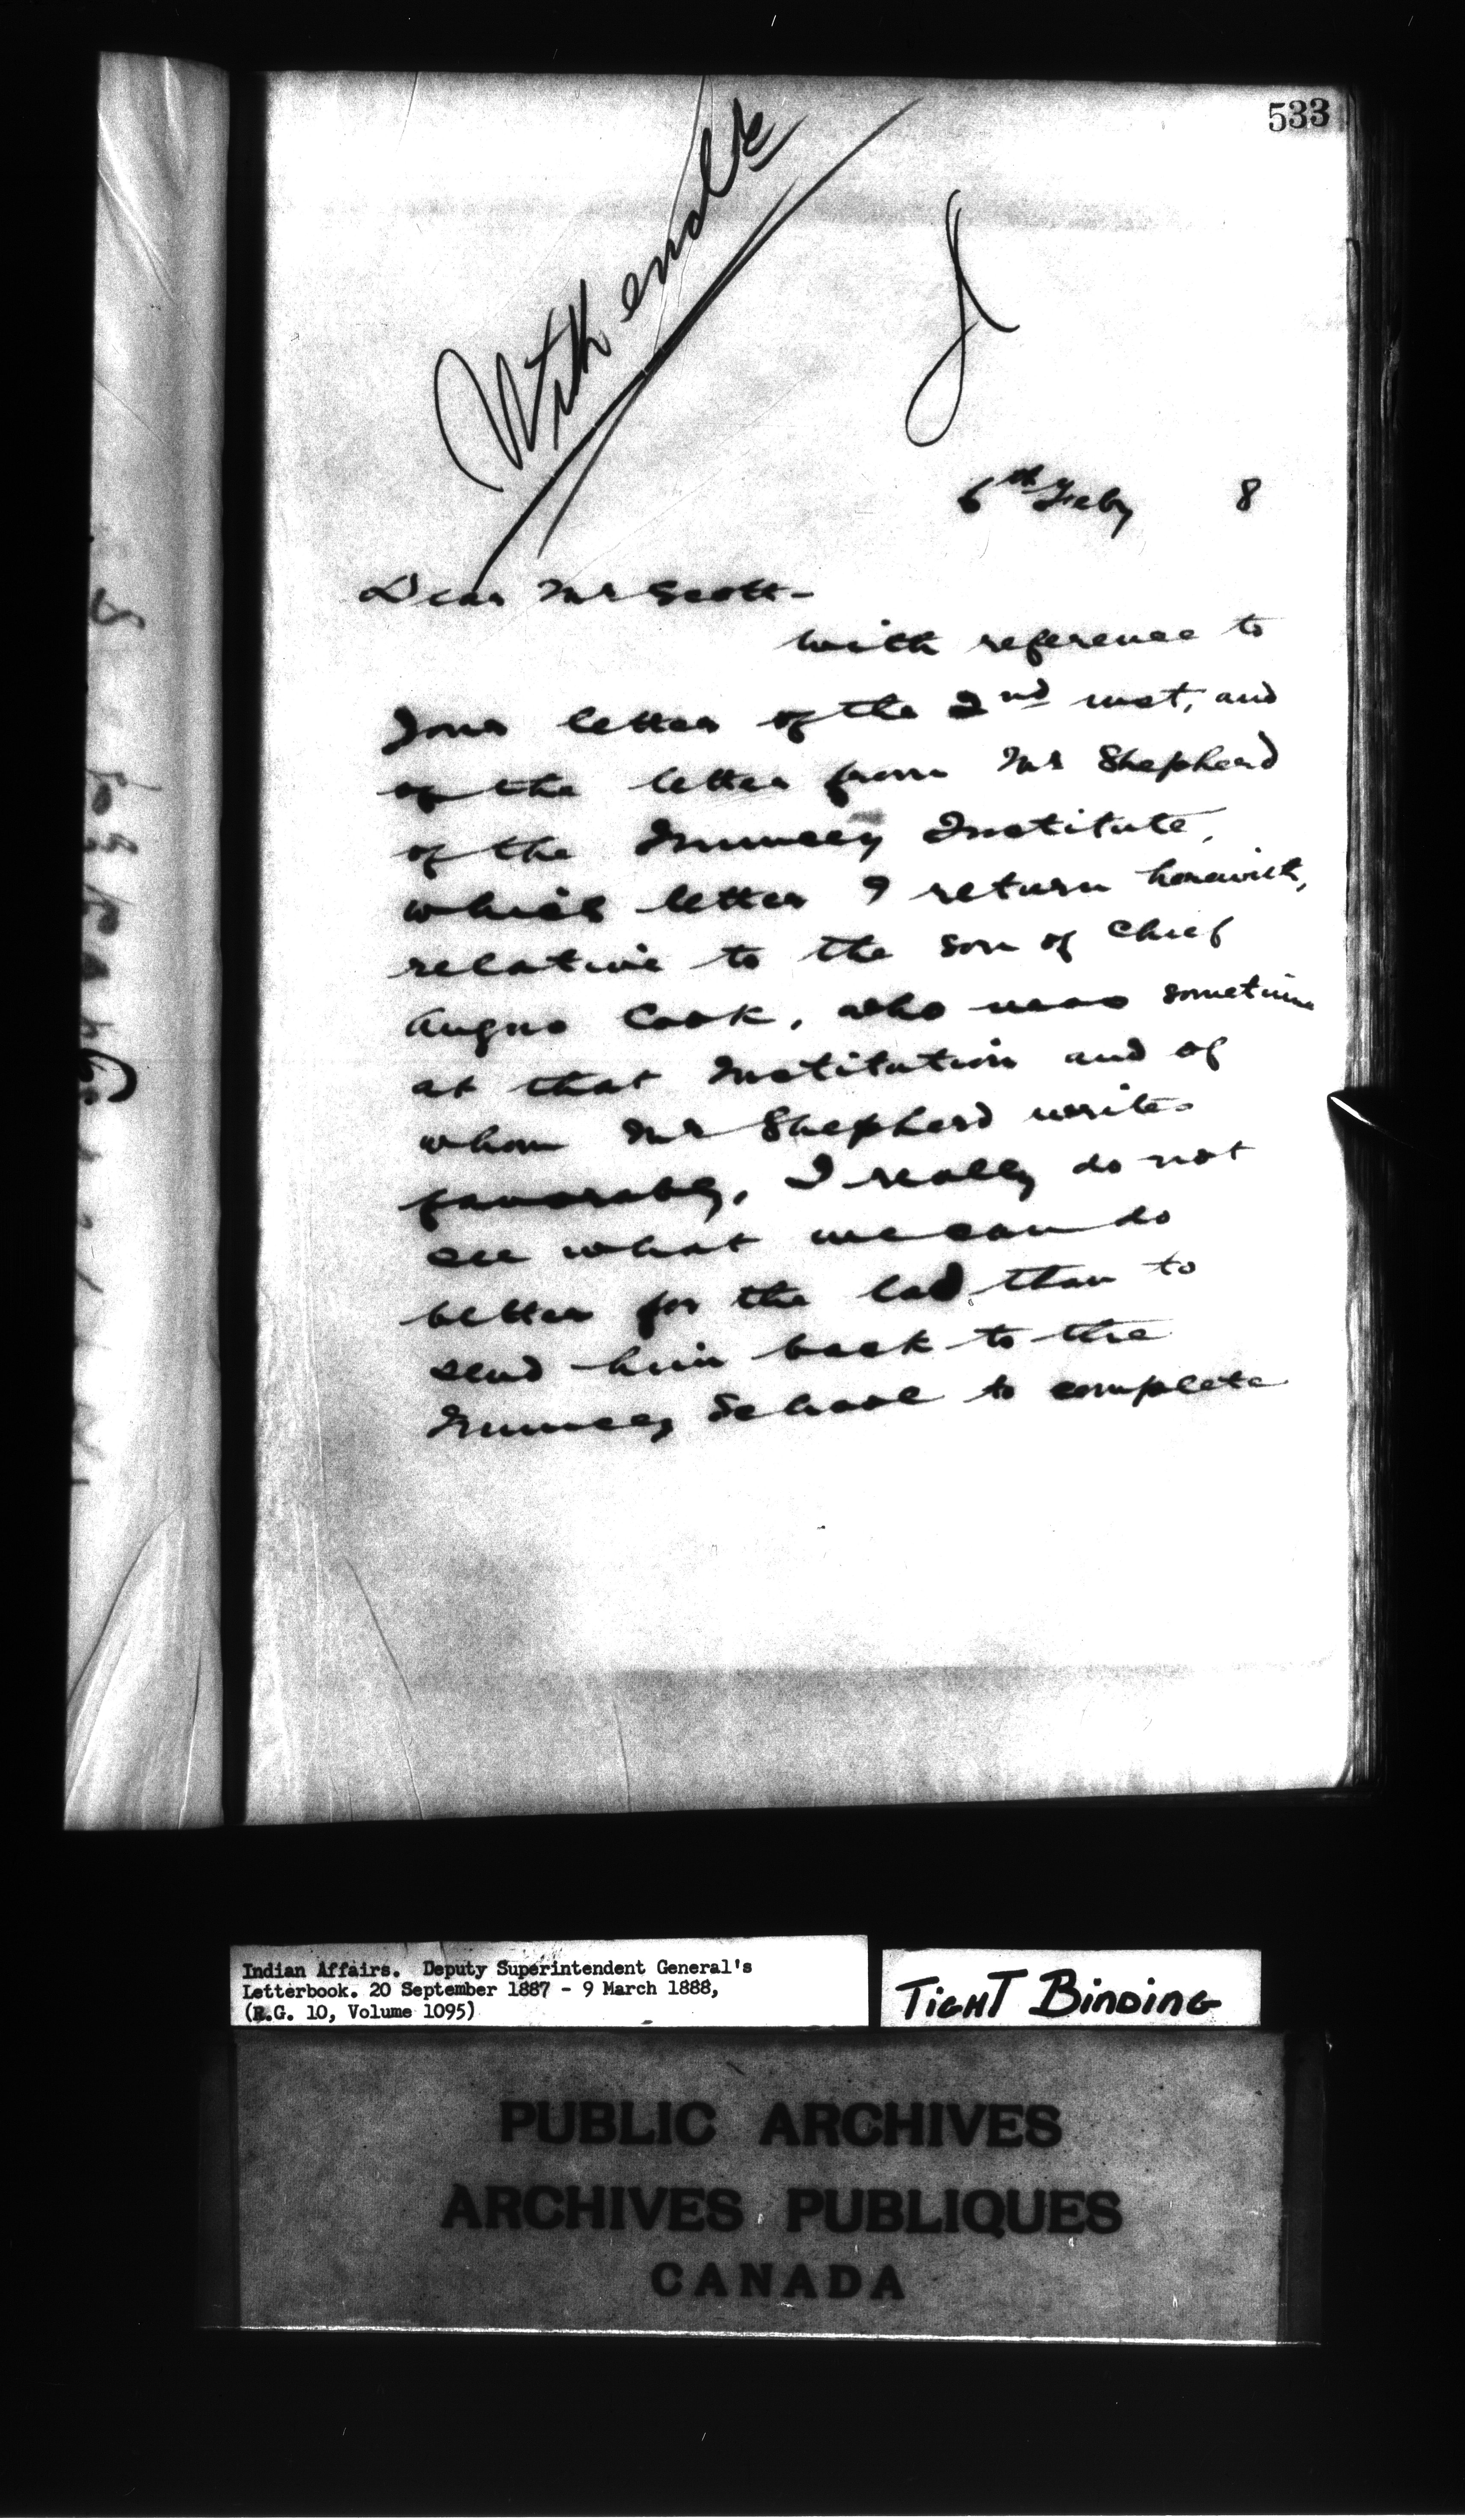 533
With encl^re
6th Feby 8
Dear Mr Scott-
with reference to
your letter of the 2nd inst, and
of the letter from Mr Shepherd
of the Muncey Institute,
which letter I return herewith,
relative to the son of Chief
Angus Cook, who was sometime
at that Institution and of
whom Mr Shepherd writes
favorably, I really do not
see what we can do
better for the lad, than to
send him back to the
Muncey School to complete
Indian Affairs. Deputy Superintendent General's
Letterbook. 20 September 1887 - 9 March 1888,
(R.G. 10, Volume 1095)
TIGHT BINDING
PUBLIC ARCHIVES
ARCHIVES PUBLIQUES
CANADA